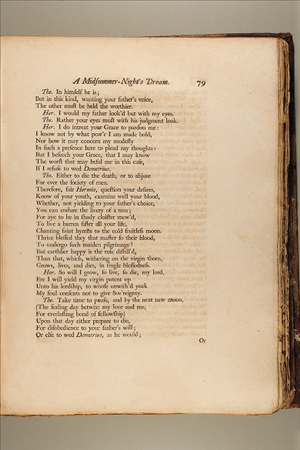 A Midsummer-Night's Dream. 79
The. In himself he is;
But in this kind, wanting your father's voice,
The other must be held the worthier.
Her. I would my father look'd but with my eyes.
The. Rather your eyes must with his judgment look.
Her. I do intreat your Grace to pardon me:
I know not by what pow'r I am made bold,
Nor how it may concern my modesty
In such a presence here to plead my thoughts:
But I beseech your Grace, that I may know
The worst that may befal me in this case,
If I refuse to wed Demetrius.
The. Either to die the death, or to abjure
For ever the society of men.
Therefore, fair Hermia, question your desires,
Know of your youth, examine well your blood,
Whether, not yielding to your father's choice,
You can endure the livery of a nun;
For aye to be in shady cloister mew'd,
To live a barren sister all your life,
Chanting faint hymns to the cold fruitless moon.
Thrice blessed they that master so their blood,
To undergo such maiden pilgrimage!
But earthlier happy is the rose distill'd,
Than that, which, withering on the virgin thorn,
Grows, lives, and dies, in single blessedness.
Her. So will I grow, so live, so die, my lord,
Ere I will yield my virgin patent up
Unto his lordship, to whose unwish'd yoak
My soul consents not to give Sov'reignty.
The. Take time to pause, and by the next new moon,
(The sealing day betwixt my love and me,
For everlasting bond of fellowship)
Upon that day either prepare to die,
For disobedience to your father's will;
Or else to wed Demetrius, as he would;
Or